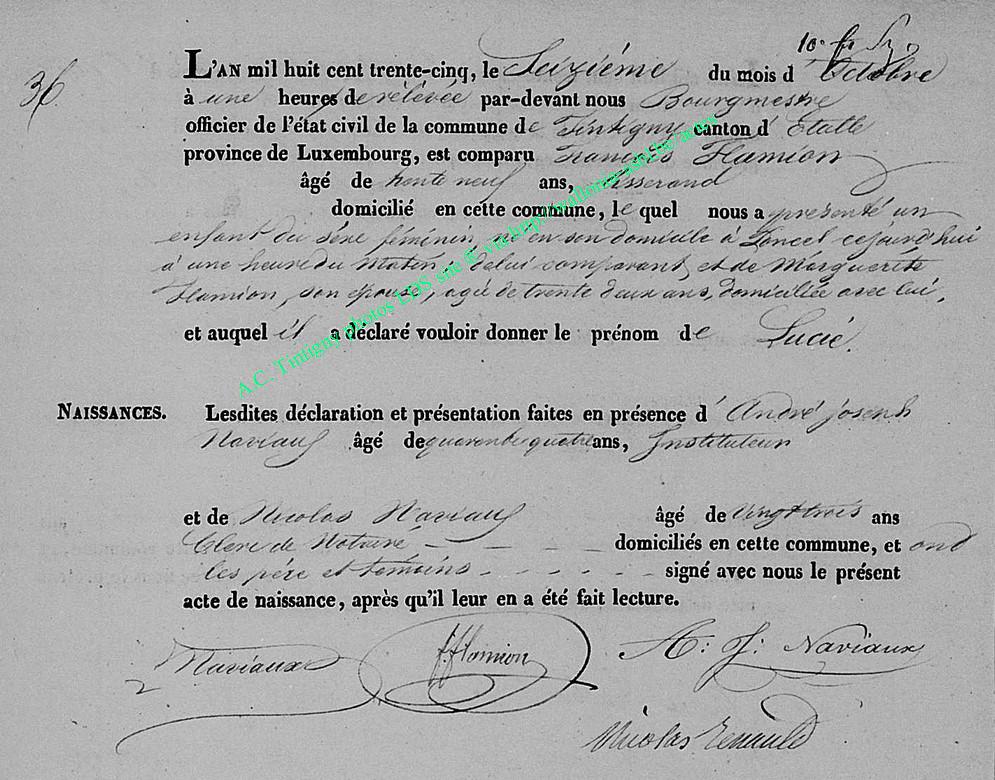 36
L'AN mil huit cent trente-cinq, le Seizième du mois d'Octobre
à une heures de rélévée par-devant nous Bourgmestre
officier de l'état civil de la commune de Tintigny canton d'Etalle
province de Luxembourg, est comparu François Flamion
âgé de trente neuf ans, tisserand
domicilié en cette commune, le quel nous a présenté un
enfant du séxe féminin, né en son domicile à Lancel cejourd'hui
à une heure du matin, de lui comparant, et de Marguerite
Flamion, son épouse, agée de trente deux ans, domiciliée avec lui,
et auquel il a déclaré vouloir donner le prénom de Lucie.
NAISSANCES. Lesdites déclaration et présentation faites en présence d'André joseph
Naviaux âgé de quarante quatre ans, Instituteur
et de Nicolas Naviaux âgé de vingt trois ans
Clerc de Notaire domiciliés en cette commune, et ont
les père et témoins signé avec nous le présent
acte de naissance, après qu'il leur en a été fait lecture.
Naviaux f. flamion A: J: Naviaux
Nicolas Renauld
A.C. Tintigny photos LDS site & via